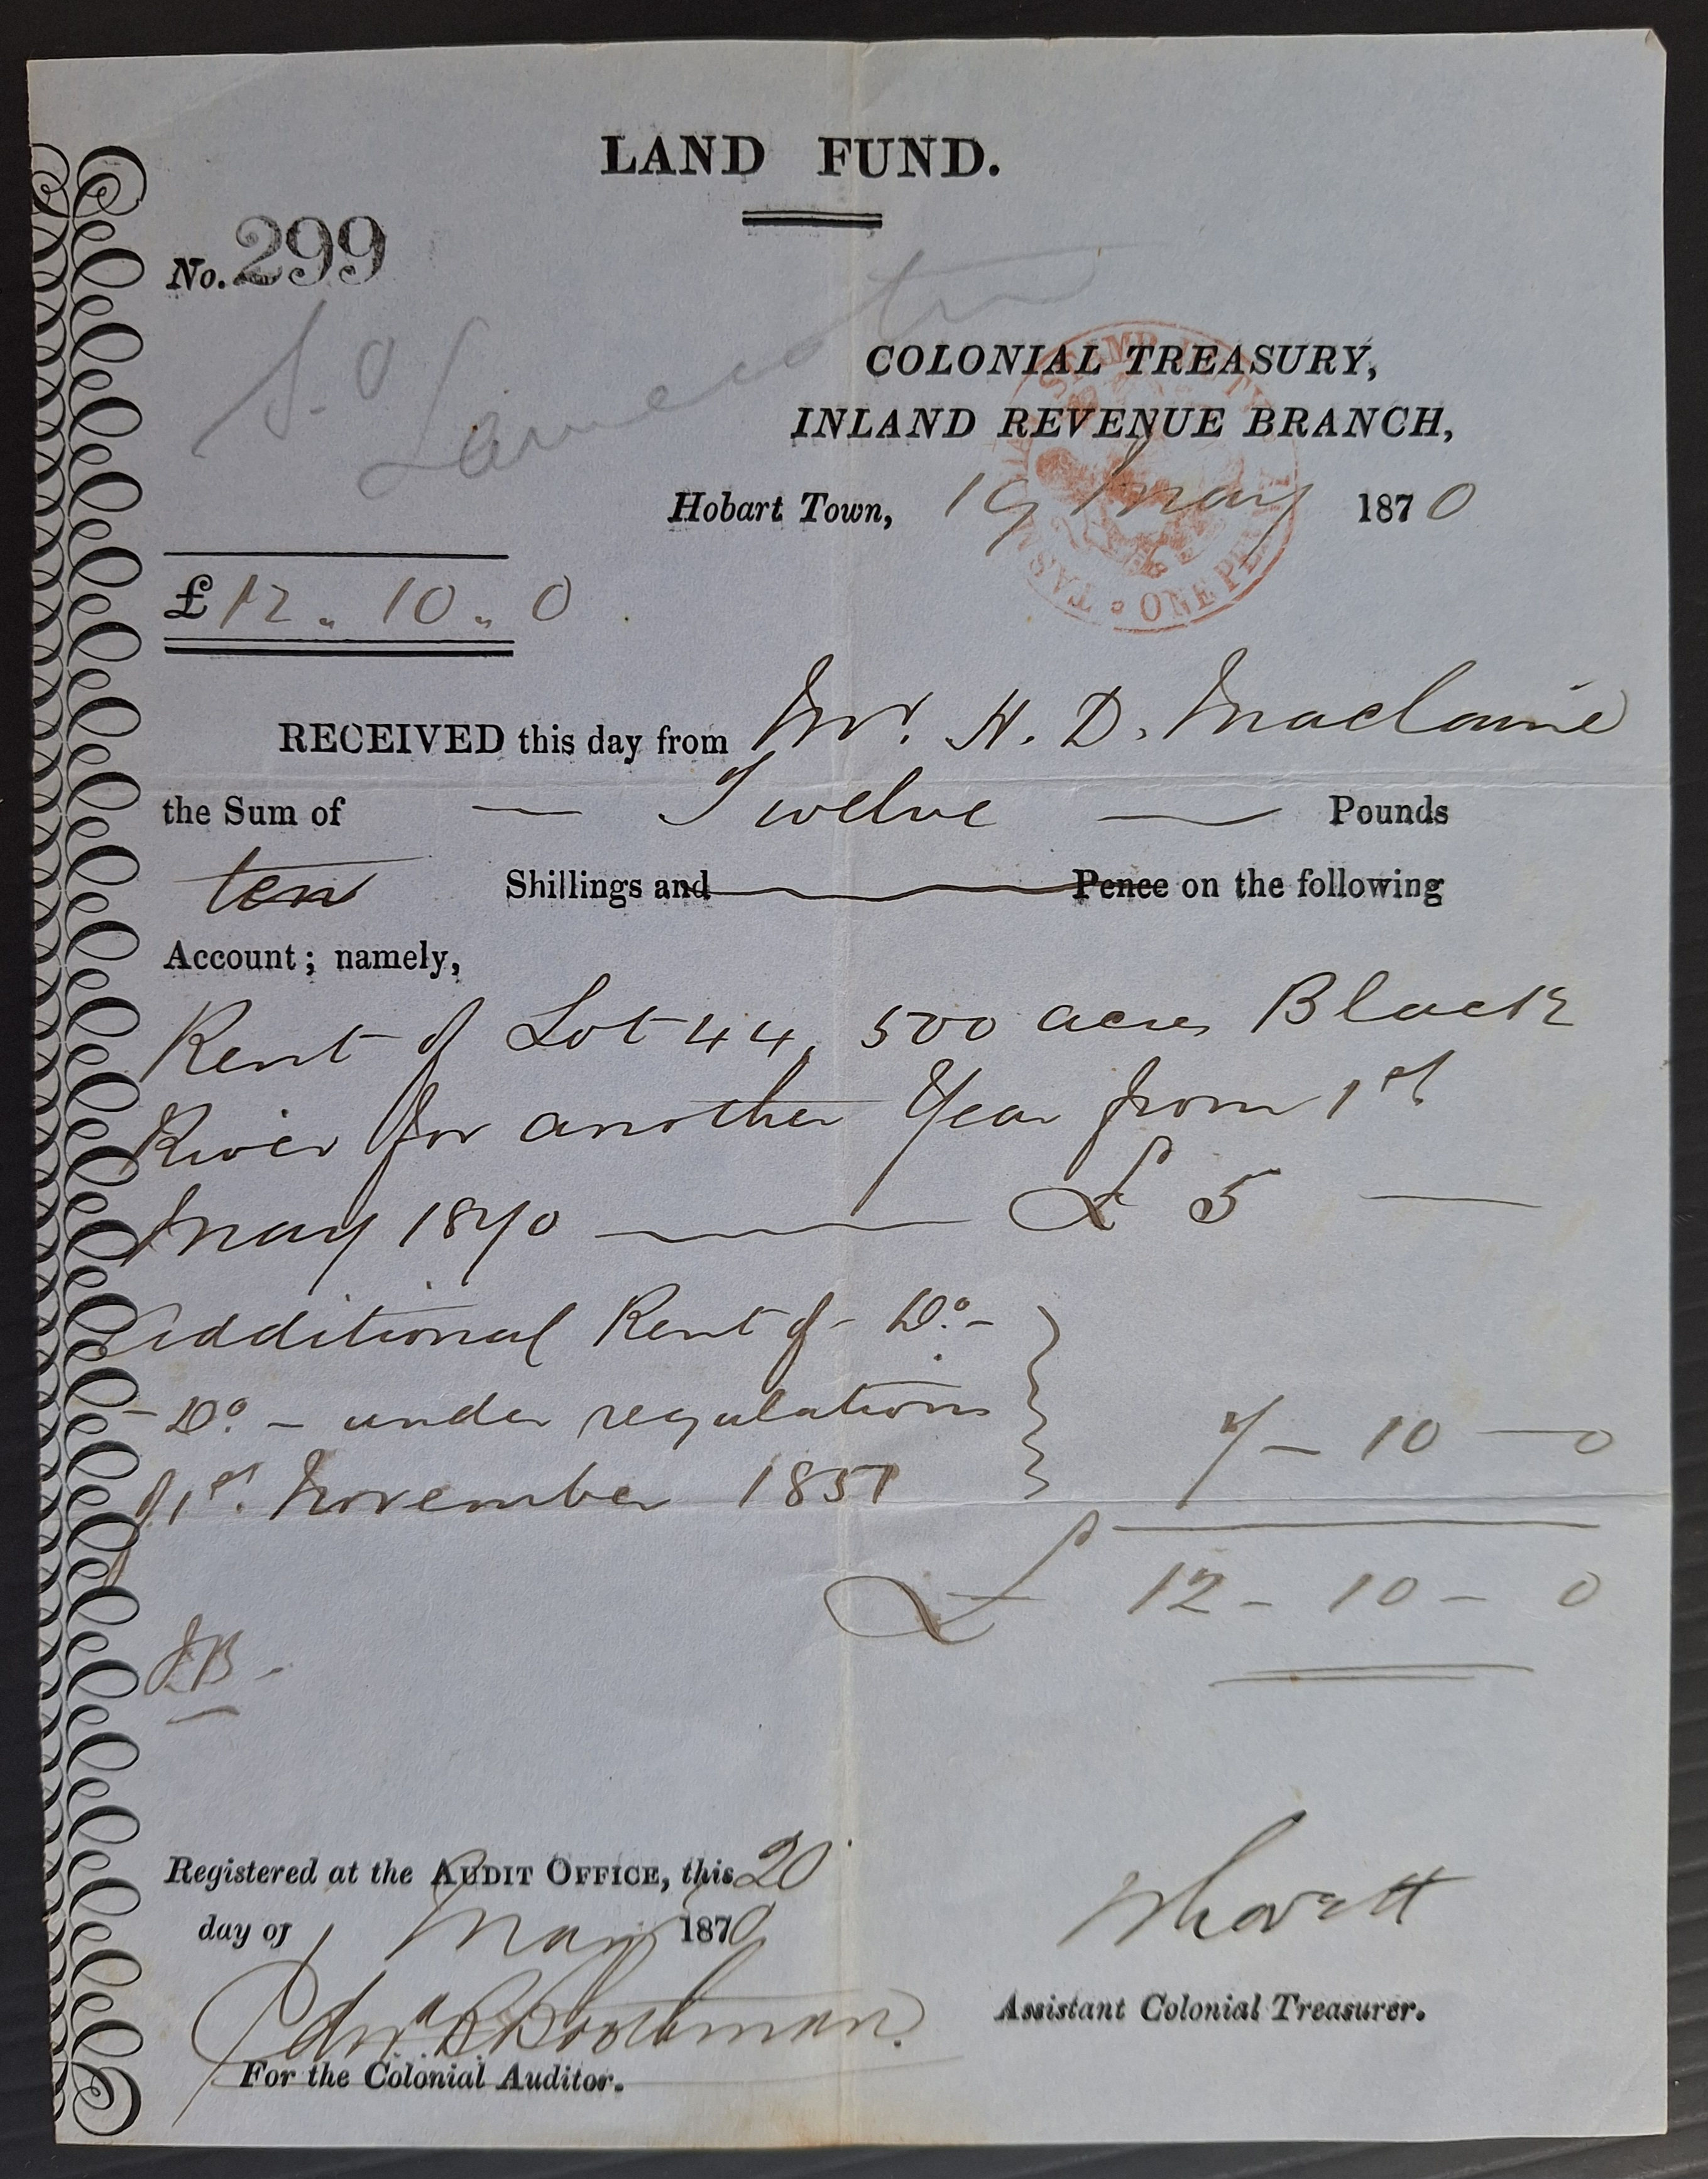 LAND FUND.
No. 299
S. O
Launceston
COLONIAL TREASURY,
INLAND REVENUE BRANCH,
STAMP DUTY TASMANIA ONE PENNY
Hobart Town, 19 May 1870
£12. 10. 0
RECEIVED this day from Mr. H. D. Maclaine
the Sum of — Twelve — Pounds
ten Shillings and Pence on the following
Account; namely,
Rent of Lot 44, 500 acres Black
River for another Year from 1st
May 1870 — £ 5 —
Additional Rent of - Do. -
- Do - under regulations 7 - 10 - 0
of 1st. November 1851
£ 12 - 10 - 0
Registered at the AUDIT OFFICE, this 20
day of May 1870
Lovett
Assistant Colonial Treasurer.
Edwd Boothman.
For the Colonial Auditor.